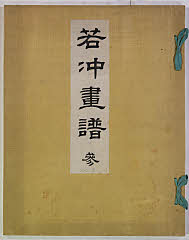 若冲畫譜 參